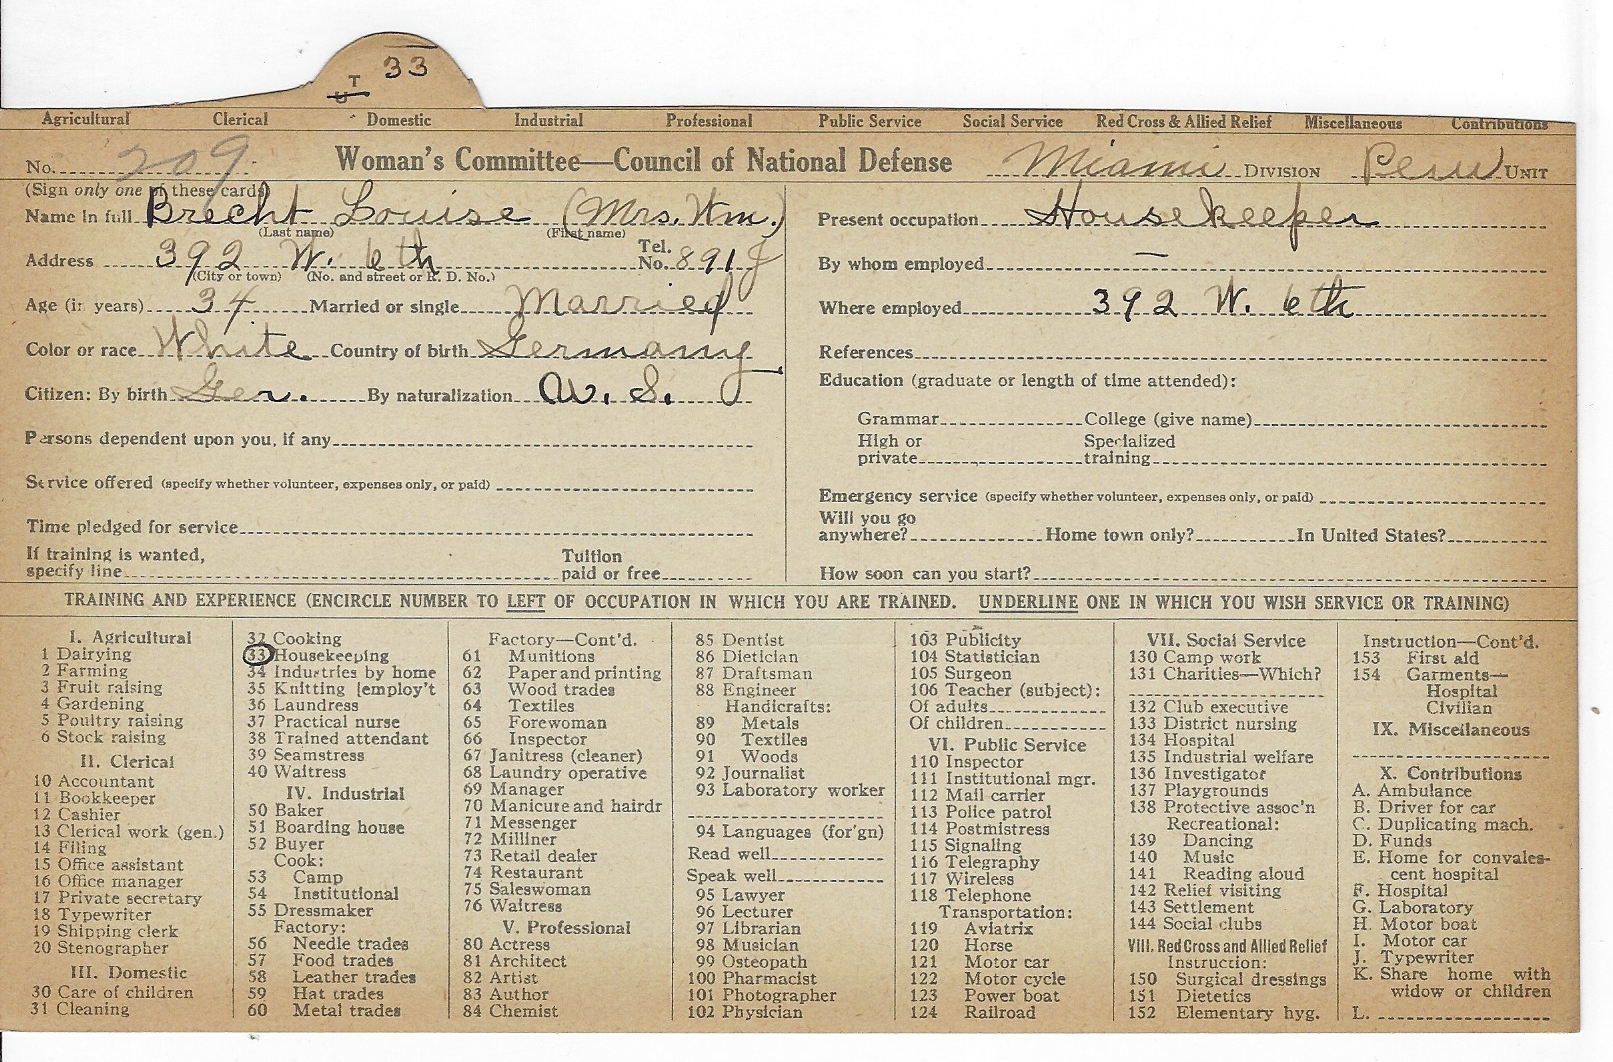 T 33
U
Agricultural Clerical Domestic Industrial Professional Public Service Social Service Red Cross & Allied Relief Miscellaneous Contributions
No. 209 Woman's Committee—Council of National Defense Miami DIVISION Peru UNIT
(Sign only one of these cards)
Name in full Brecht Louise (Mrs. Wm.)
(Last name) (First name)
Address 392 W. 6th Tel. No. 891J
(City or town) (No. and street or R. D. No.)
Age (in years) 34 Married or single Married
Color or race White Country of birth Germany
Citizen: By birth Ger. By naturalization U. S.
Persons dependent upon you, if any
Service offered (specify whether volunteer, expenses only, or paid)
Time pledged for service
If training is wanted, Tuition
specify line paid or free
Present occupation Housekeeper
By whom employed —
Where employed 392 W. 6th
References
Education (graduate or length of time attended):
Grammar College (give name)
High or Specialized
private training
Emergency service (specify whether volunteer, expenses only, or paid)
Will you go
anywhere? Home town only? In United States?
How soon can you start?
TRAINING AND EXPERIENCE (ENCIRCLE NUMBER TO LEFT OF OCCUPATION IN WHICH YOU ARE TRAINED. UNDERLINE ONE IN WHICH YOU WISH SERVICE OR TRAINING)
I. Agricultural
1 Dairying
2 Farming
3 Fruit raising
4 Gardening
5 Poultry raising
6 Stock raising
II. Clerical
10 Accountant
11 Bookkeeper
12 Cashier
13 Clerical work (gen.)
14 Filing
15 Office assistant
16 Office manager
17 Private secretary
18 Typewriter
19 Shipping clerk
20 Stenographer
III. Domestic
30 Care of children
31 Cleaning
32 Cooking
33 Housekeeping
34 Industries by home
35 Knitting [employ't
36 Laundress
37 Practical nurse
38 Trained attendant
39 Seamstress
40 Waitress
IV. Industrial
50 Baker
51 Boarding house
52 Buyer
Cook:
53 Camp
54 Institutional
55 Dressmaker
Factory:
56 Needle trades
57 Food trades
58 Leather trades
59 Hat trades
60 Metal trades
Factory—Cont'd.
61 Munitions
62 Paper and printing
63 Wood trades
64 Textiles
65 Forewoman
66 Inspector
67 Janitress (cleaner)
68 Laundry operative
69 Manager
70 Manicure and hairdr
71 Messenger
72 Milliner
73 Retail dealer
74 Restaurant
75 Saleswoman
76 Waitress
V. Professional
80 Actress
81 Architect
82 Artist
83 Author
84 Chemist
85 Dentist
86 Dietician
87 Draftsman
88 Engineer
Handicrafts:
89 Metals
90 Textiles
91 Woods
92 Journalist
93 Laboratory worker
94 Languages (for'gn)
Read well
Speak well
95 Lawyer
96 Lecturer
97 Librarian
98 Musician
99 Osteopath
100 Pharmacist
101 Photographer
102 Physician
103 Publicity
104 Statistician
105 Surgeon
106 Teacher (subject):
Of adults
Of children
VI. Public Service
110 Inspector
111 Institutional mgr.
112 Mail carrier
113 Police patrol
114 Postmistress
115 Signaling
116 Telegraphy
117 Wireless
118 Telephone
Transportation:
119 Aviatrix
120 Horse
121 Motor car
122 Motor cycle
123 Power boat
124 Railroad
VII. Social Service
130 Camp work
131 Charities—Which?
132 Club executive
133 District nursing
134 Hospital
135 Industrial welfare
136 Investigator
137 Playgrounds
138 Protective assoc'n
Recreational:
139 Dancing
140 Music
141 Reading aloud
142 Relief visiting
143 Settlement
144 Social clubs
VIII. Red Cross and Allied Relief
Instruction:
150 Surgical dressings
151 Dietetics
152 Elementary hyg.
Instruction—Cont'd.
153 First aid
154 Garments—
Hospital
Civilian
IX. Miscellaneous
X. Contributions
A. Ambulance
B. Driver for car
C. Duplicating mach.
D. Funds
E. Home for convales-
cent hospital
F. Hospital
G. Laboratory
H. Motor boat
I. Motor car
J. Typewriter
K. Share home with
widow or children
L.